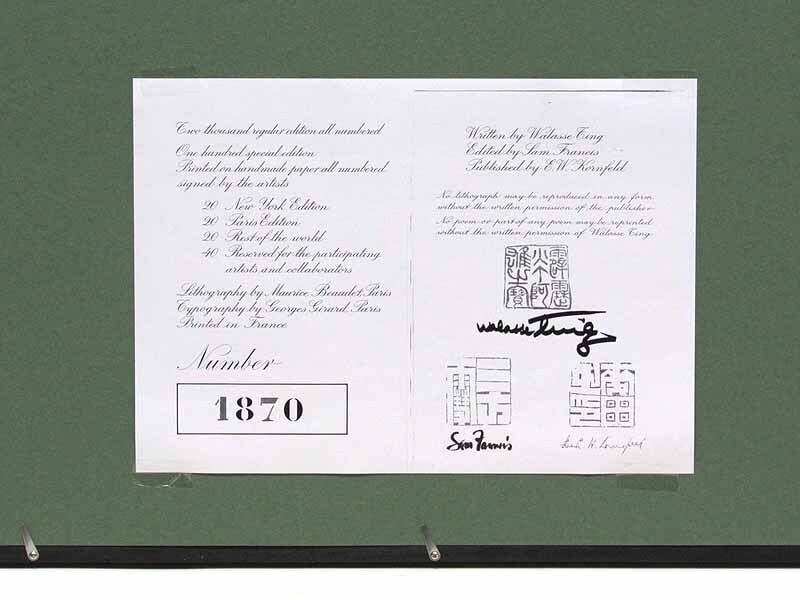 Two thousand regular edition all numbered
One hundred special edition
Printed on handmade paper all numbered
signed by the artists
20 New York Edition
20 Paris Edition
20 Rest of the world
40 Reserved for the participating
artists and collaborators
Lithography by Maurice Beaudet, Paris
Typography by Georges Girard, Paris
Printed in France
Number
1870
Written by Walasse Ting
Edited by Sam Francis
Published by E.W. Kornfeld
No lithograph may be reproduced in any form
without the written permission of the publisher
No poem or part of any poem may be reprinted
without the written permission of Walasse Ting
walasse Ting
Sam Francis